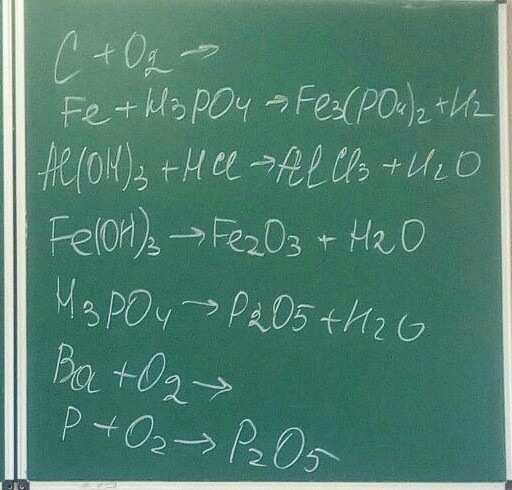 C + O₂ →
Fe + H₃PO₄ → Fe₃(PO₄)₂ + H₂
Al(OH)₃ + HCl → AlCl₃ + H₂O
Fe(OH)₃ → Fe₂O₃ + H₂O
H₃PO₄ → P₂O₅ + H₂O
Ba + O₂ →
P + O₂ → P₂O₅